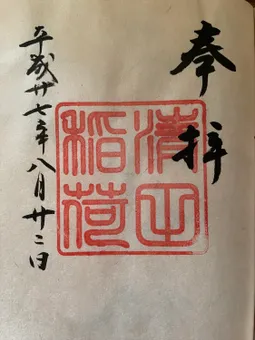 奉拝
清正
稲荷
平成廿七年八月廿二日